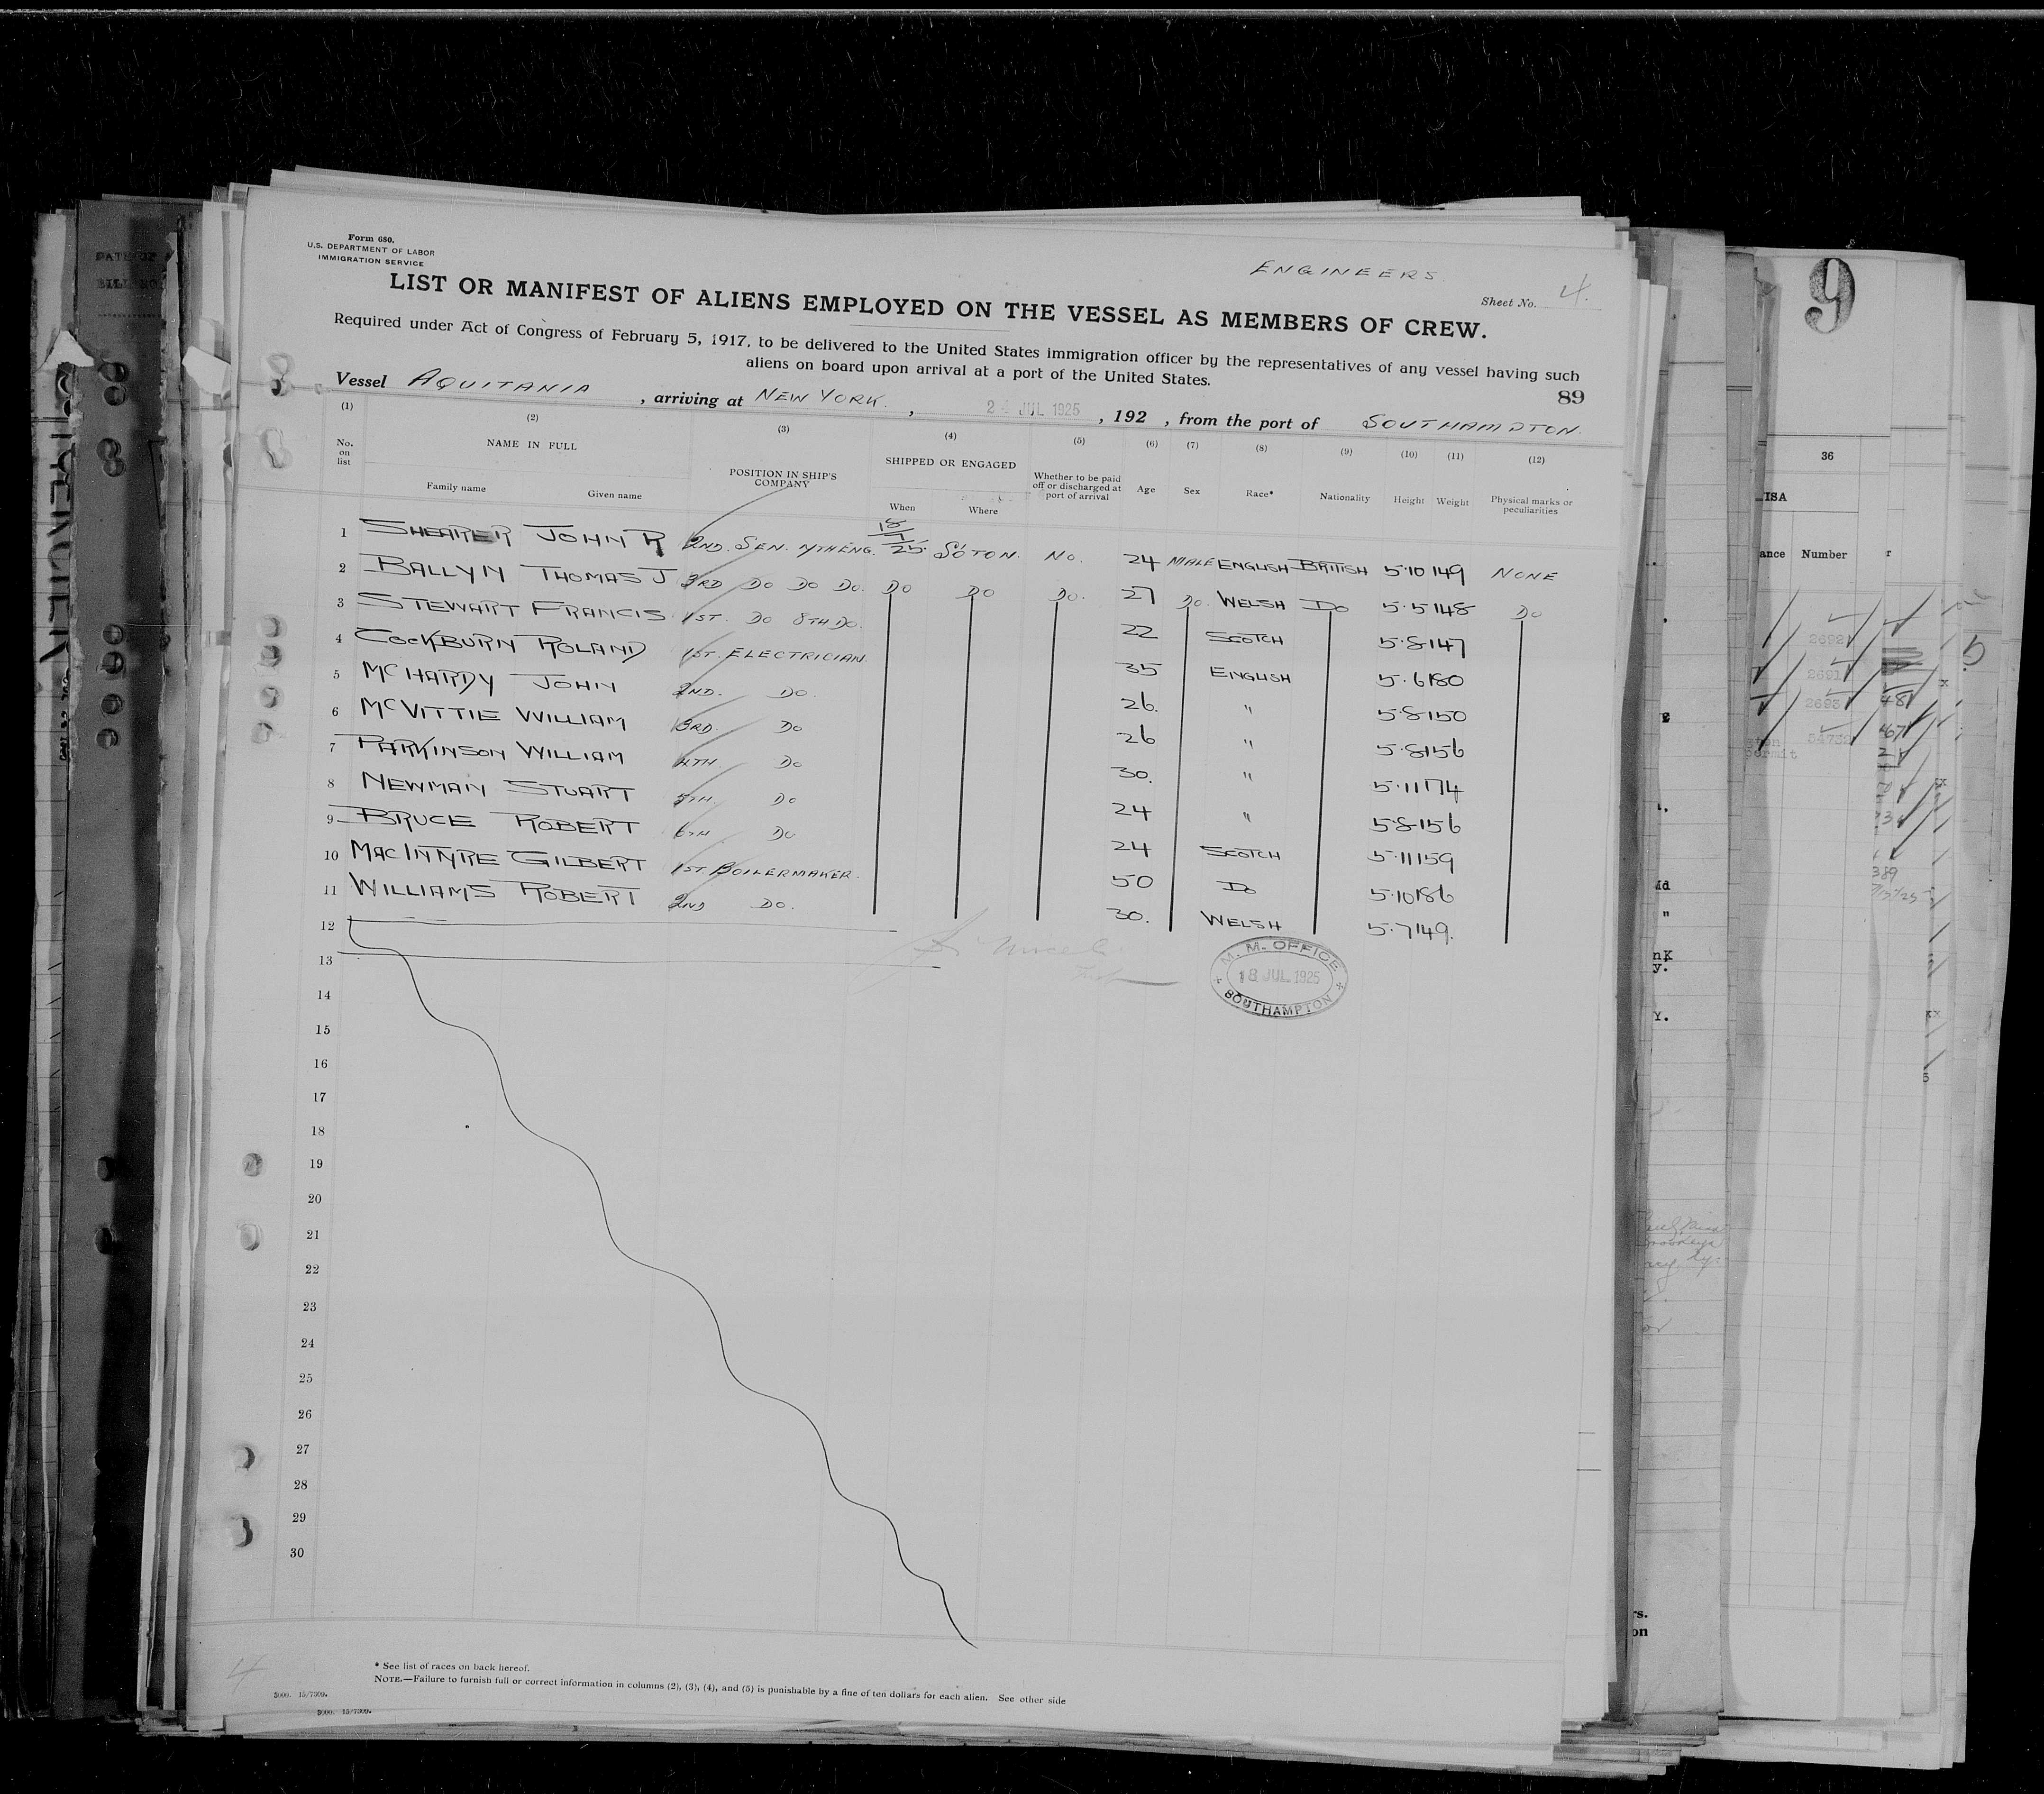 Form 680.
U.S. DEPARTMENT OF LABOR
IMMIGRATION SERVICE
ENGINEERS.
Sheet No. 4.
LIST OR MANIFEST OF ALIENS EMPLOYED ON THE VESSEL AS MEMBERS OF CREW.
Required under Act of Congress of February 5, 1917, to be delivered to the United States immigration officer by the representatives of any vessel having such
aliens on board upon arrival at a port of the United States.
89
Vessel AQUITANIA , arriving at NEW YORK. , JUL 1925 , 192 , from the port of SOUTHAMPTON.
(1) (2) (3) (4) (5) (6) (7) (8) (9) (10) (11) (12)
No. on list NAME IN FULL Family name Given name POSITION IN SHIP'S COMPANY SHIPPED OR ENGAGED When Where Whether to be paid off or discharged at port of arrival Age Sex Race* Nationality Height Weight Physical marks or peculiarities
1 SHEARER JOHN R 2ND. SEN. 7TH ENG. 18/7/25. SO'TON. NO. 24 MALE ENGLISH BRITISH 5·10 149 NONE
2 BALLYN THOMAS J 3RD DO DO DO. DO DO DO. 27 DO. WELSH DO 5·5 148 DO
3 STEWART FRANCIS. 1ST. DO 8TH DO. 22 SCOTCH 5·8 147
4 COCKBURN ROLAND 1ST. ELECTRICIAN. 35 ENGLISH 5·6 180
5 MCHARDY JOHN 2ND. DO. 26. " 5·8 150
6 MCVITTIE WILLIAM 3RD. DO 26 " 5·8 156
7 PARKINSON WILLIAM 4TH. DO 30. " 5·11 174
8 NEWMAN STUART 5TH. DO 24 " 5·8 156
9 BRUCE ROBERT 6TH DO 24 SCOTCH 5·11 159
10 MACINTYRE GILBERT 1ST. BOILERMAKER. 50 DO 5·10 186
11 WILLIAMS ROBERT 2ND DO. 30. WELSH 5·7 149.
12
13
M. M. OFFICE
18 JUL 1925
SOUTHAMPTON
14
15
16
17
18
19
20
21
22
23
24
25
26
27
28
29
30
* See list of races on back hereof.
NOTE.—Failure to furnish full or correct information in columns (2), (3), (4), and (5) is punishable by a fine of ten dollars for each alien. See other side
4
5000. 15/7309.
5000. 15/7309.
9
36
ISA
ance Number
2692
2691
2693
54732
389